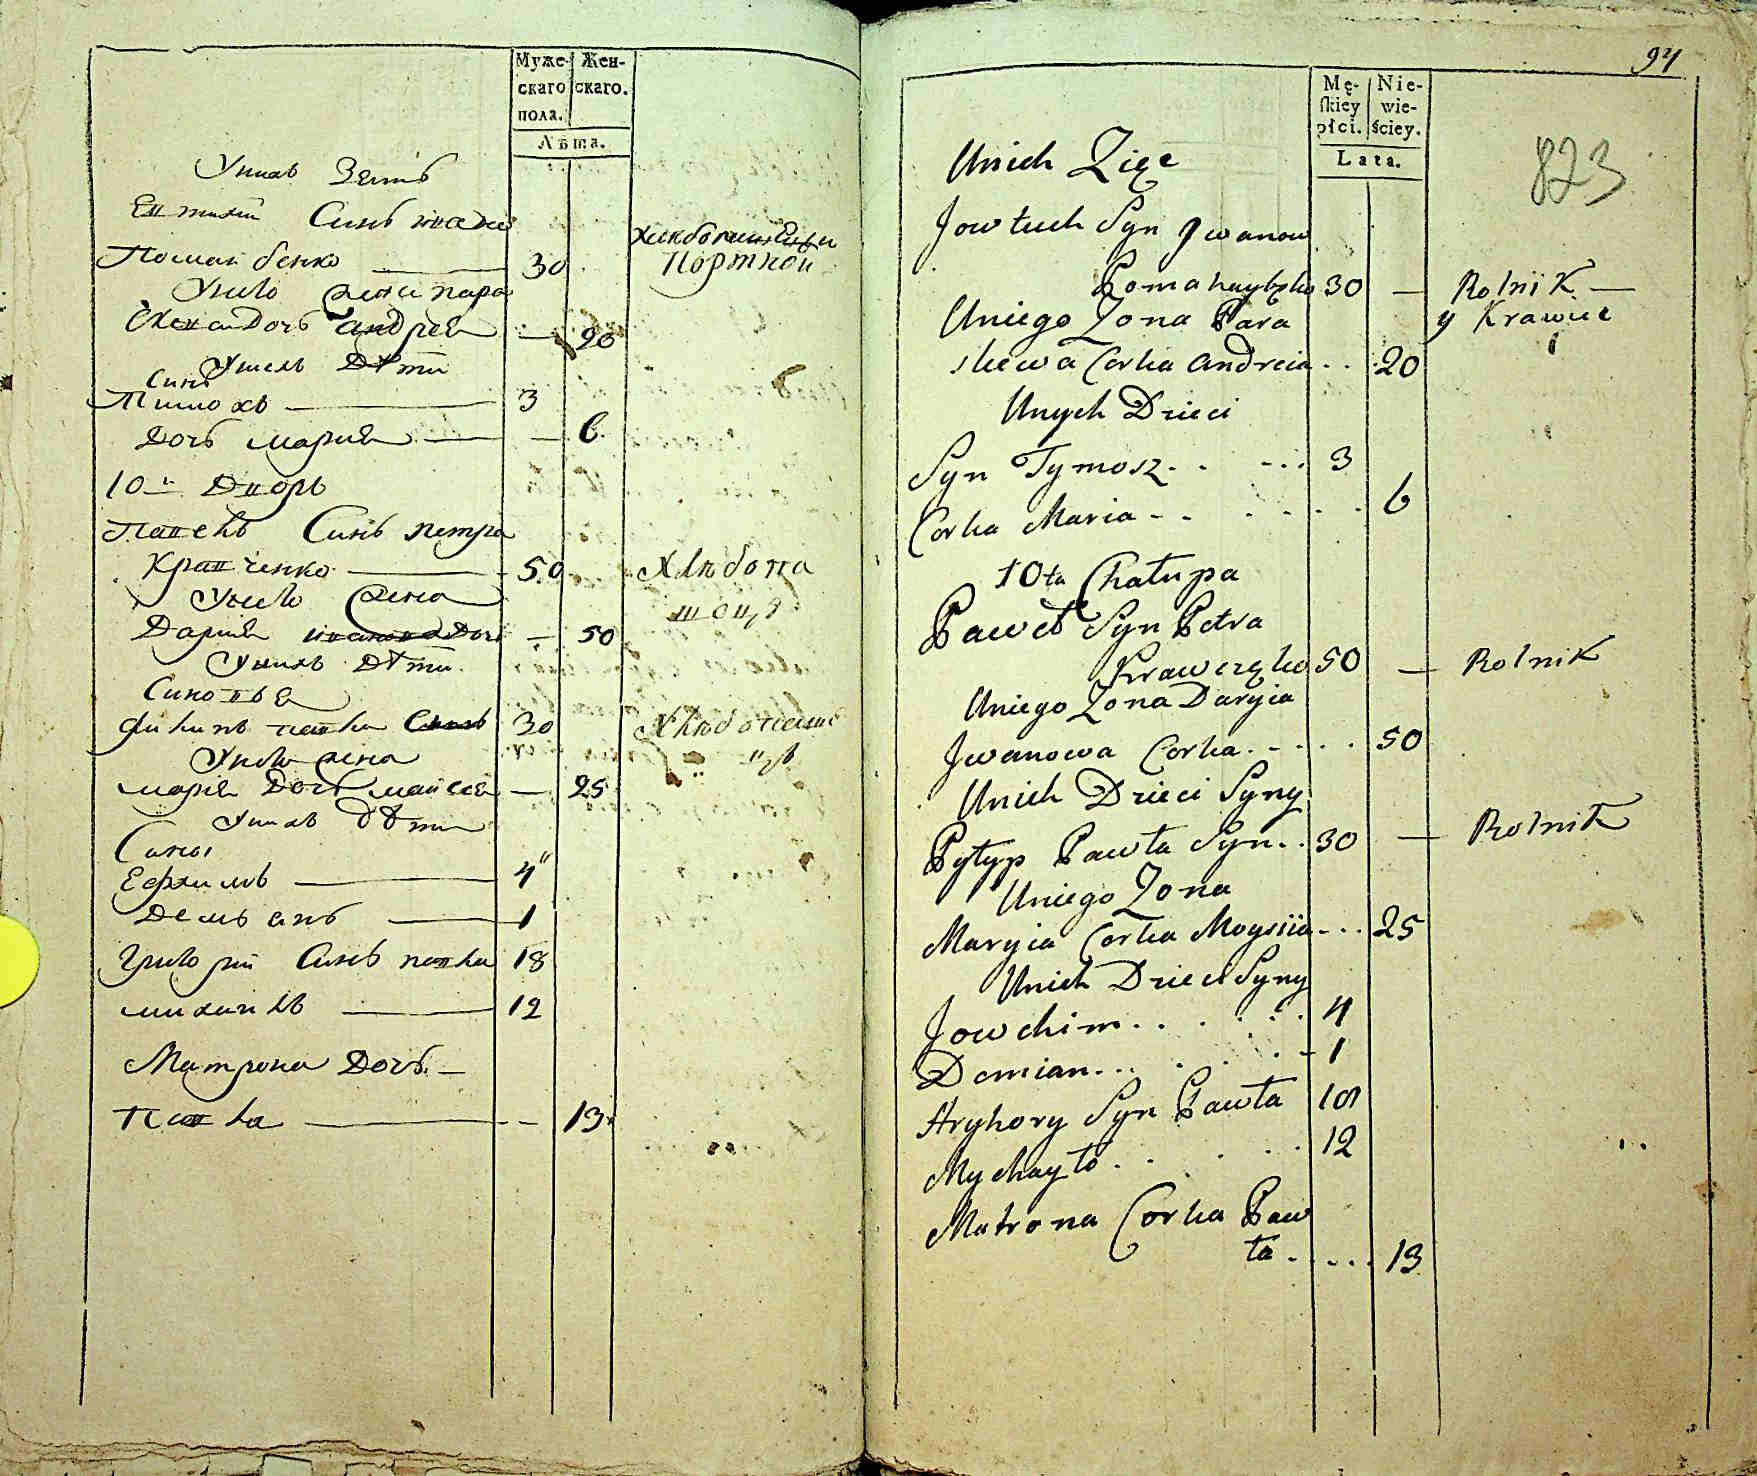 Муже-
скаго
пола.
Жен-
скаго.
Лѣта.
Унихъ Зять
Евтихій Синъ ивана
Романбенко 30
Хлѣбопашецъ и
Портной
Унего Жена пара
скева Дочь андрея — 20
Унихъ Дѣти
Синъ
Тимохъ 3
Дочь мария — 6
10й Дворъ
Павелъ Синъ петра
Кравченко 50
Хлѣбопа
шецъ
Унего Жена
Дария иванова Дочь — 50
Унихъ Дѣти
Синовья
Филипъ павла Синъ 30
Хлѣбопаше
цъ
Унего Жена
мария Дочь мойсея — 25
Унихъ дѣти
Сины
Ефхимъ 4
Демьянъ 1
Григорий Синъ павла 18
михайлъ 12
Матрона Дочь —
Павла — 13
94
823
Mę-
skiey
płci.
Nie-
wie-
ściey.
Lata.
Unich Zięc
Jowtuch Syn Jwanow
Romanaybęko 30 — Rolnik —
y Krawiec
Uniego Zona Para
skewa Corka Andreia . . 20
Unych Dzieci
Syn Tymosz . . - . . 3
Corka Maria - . . - . . 6
10ta Chałupa
Paweł Syn Petra
Krawczęko 50 — Rolnik
Uniego Zona Daryia
Jwanowa Corka . - . . . 50
Unich Dzieci Syny
Pylyp Pawła Syn . . 30 — Rolnik
Uniego Zona
Maryia Corka Moysiia - . . 25
Unich Dzieci Syny
Jowchim . . . . . . 4
Demian . . . . . - 1
Hryhory Syn Pawła 18
Mychayło . . . . . 12
Matrona Corka Paw
ła . . . . . 13